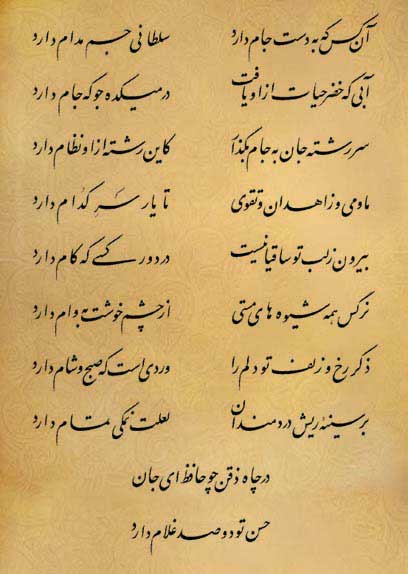 آن کس که به دست جام دارد سلطانی جم مدام دارد
آبی که خضر حیات از او یافت در میکده جو که جام دارد
سررشته جان به جام بگذار کاین رشته از او نظام دارد
ما و می و زاهدان و تقوی تا یار سر کدام دارد
بیرون ز لب تو ساقیا نیست در دور کسی که کام دارد
نرگس همه شیوه های مستی از چشم خوشت به وام دارد
ذکر رخ و زلف تو دلم را وردی است که صبح و شام دارد
بر سینه ریش دردمندان لعلت نمکی تمام دارد
در چاه ذقن چو حافظ ای جان
حسن تو دو صد غلام دارد